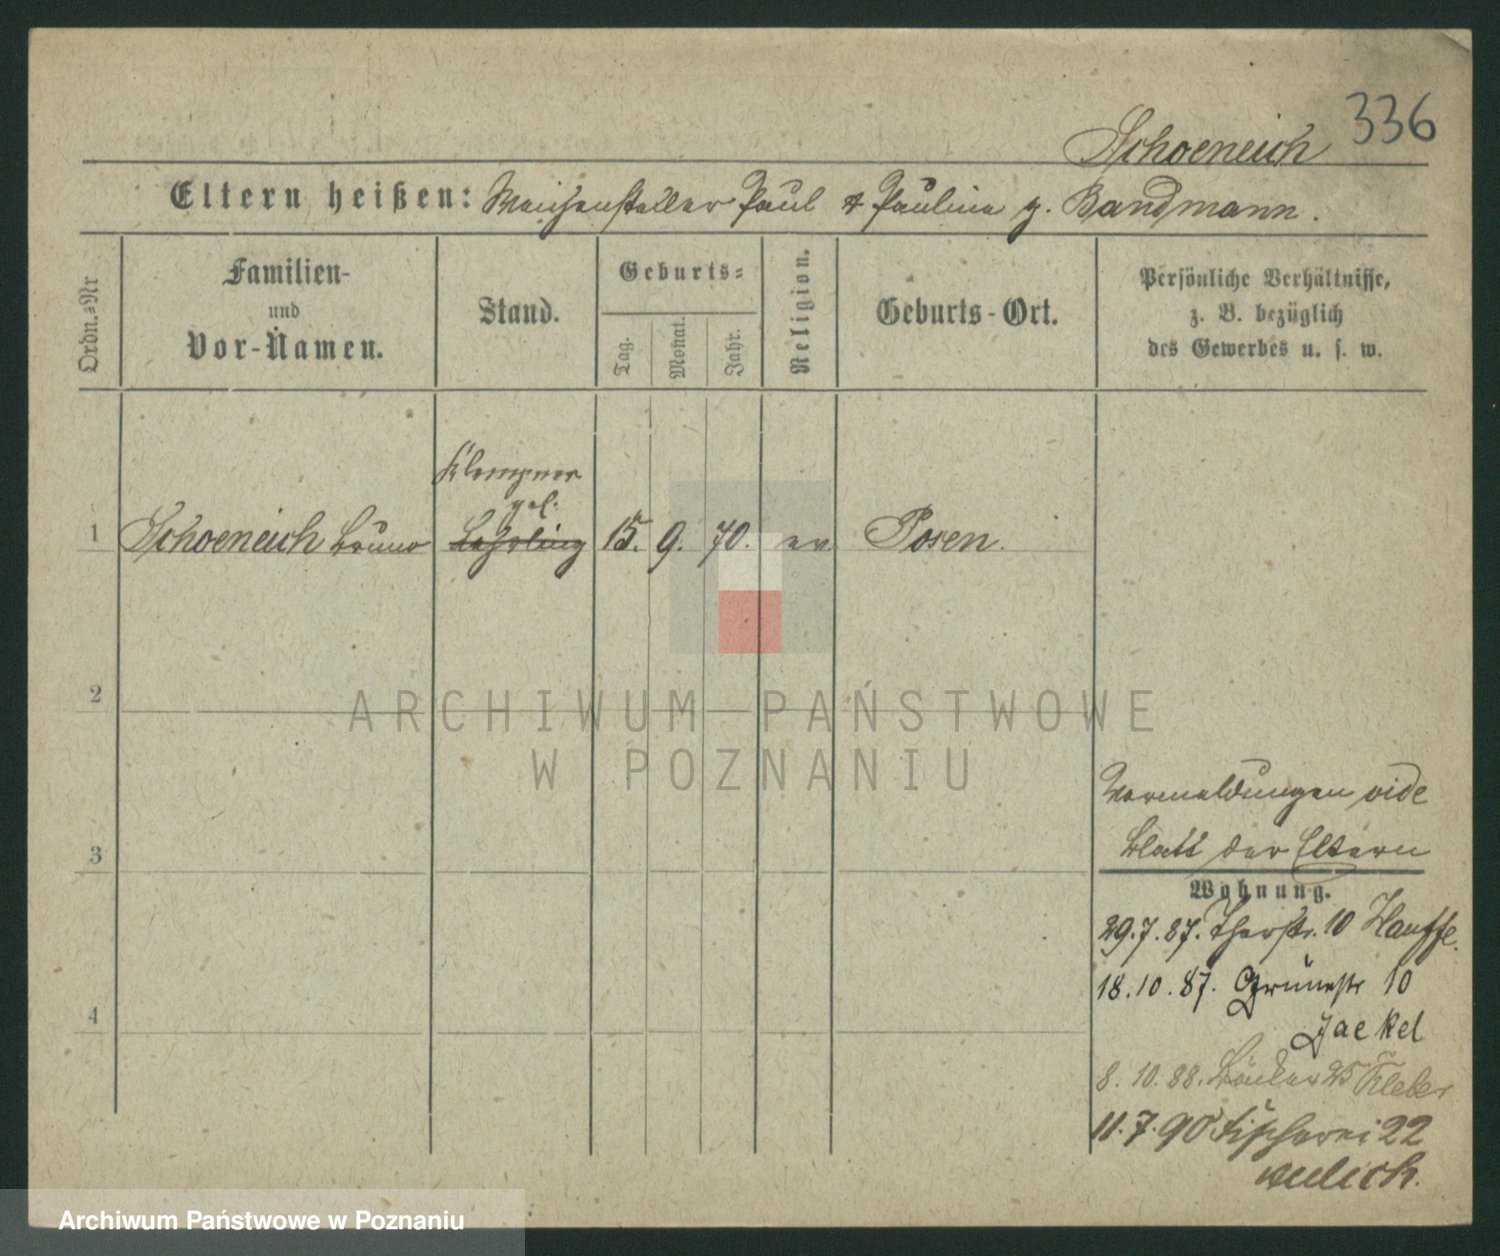 336
Schoeneich
Eltern heißen: Weichensteller Paul & Pauline g. Bandmann.
Ordn.=Nr
Familien-
und
Vor-Namen.
Stand.
Geburts=
Tag.
Monat.
Jahr.
Religion.
Geburts-Ort.
Persönliche Verhältnisse,
z. B. bezüglich
des Gewerbes u. s. w.
Klempner
gel.
1 Schoeneich Bruno Lehrling 15. 9. 70. ev Posen.
2
ARCHIWUM PAŃSTWOWE
W POZNANIU
Vermeldungen vide
3 Blatt der Eltern
Wohnung.
29.7.87. Thorstr. 10 Hauffe.
18.10.87. Grünestr 10
4 Jaekel
8.10.88. Bäcker 25 Kleber
11.7.90 Fischerei 22
Archiwum Państwowe w Poznaniu